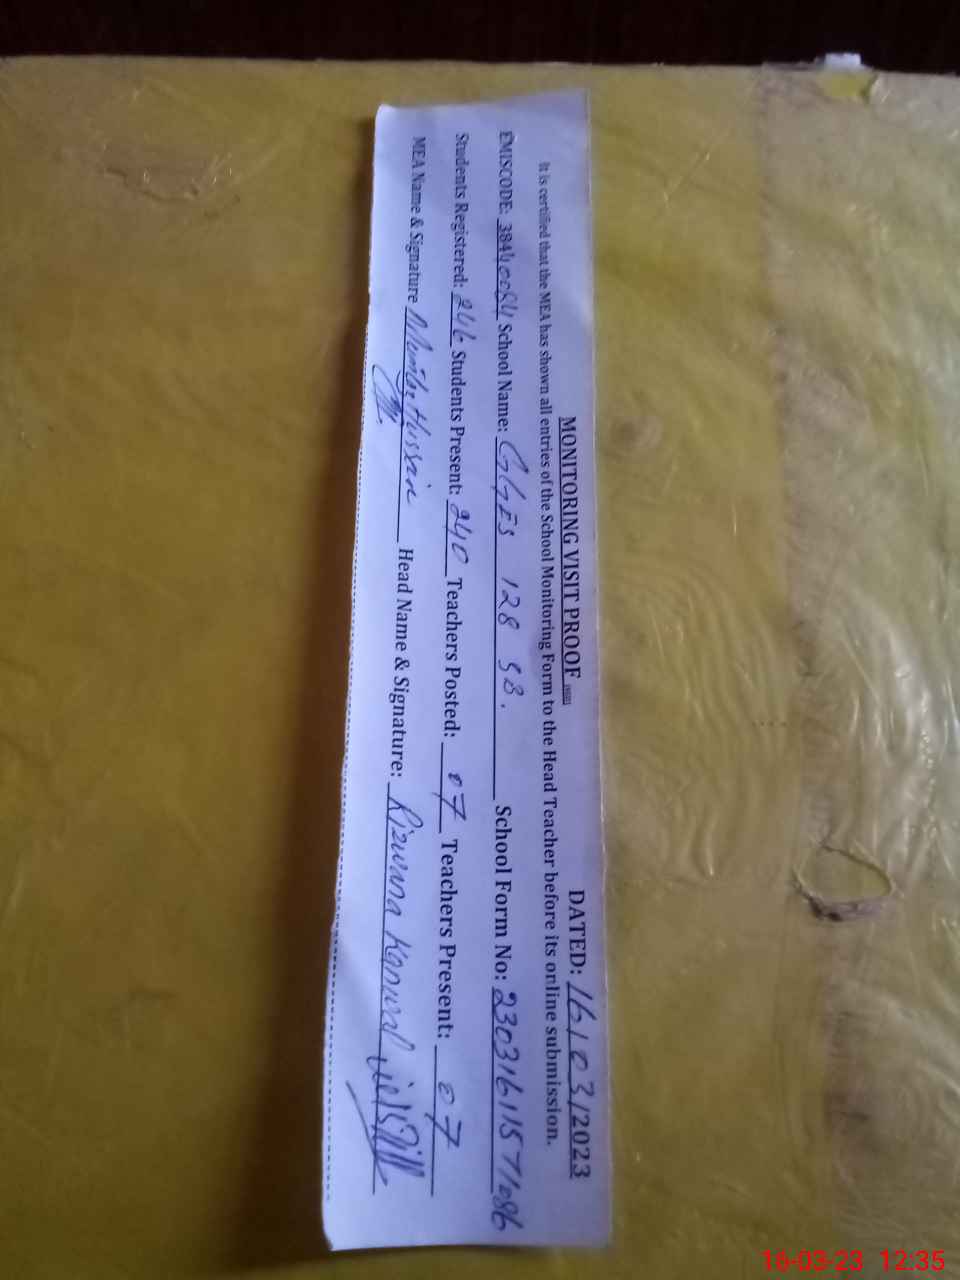 MONITORING VISIT PROOF DATED: 16/03/2023
It is certified that the MEA has shown all entries of the School Monitoring Form to the Head Teacher before its online submission.
EMISCODE: 38440084 School Name: GGES 128 SB. School Form No:
Students Registered: 246 Students Present: 240 Teachers Posted: 07 Teachers Present: 07
MEA Name & Signature Hussain Head Name & Signature: Rizwana Kanwal
16-03-23 12:35